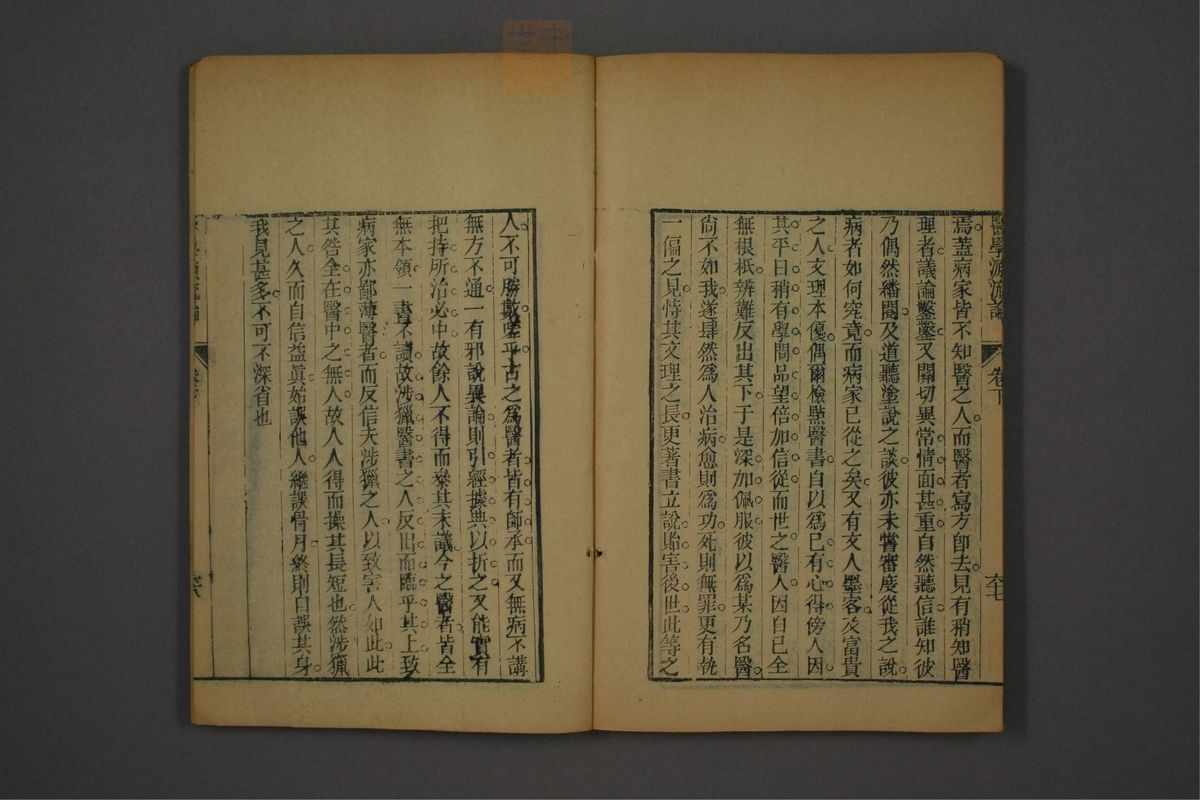 醫學源流論 卷下 六七
焉蓋病家皆不知醫之人而醫者寫方卽去見有稍知醫
理者議論鑿鑿又關切異常情面甚重自然聽信誰知彼
乃偶然繙閱及道聽塗說之談彼亦未嘗審度從我之說
病者如何究竟而病家已從之矣又有文人墨客及富貴
之人文理本優偶爾檢點醫書自以爲已有心得傍人因
其平日稍有學問品望倍加信從而世之醫人因自己全
無根柢辨難反出其下于是深加佩服彼以爲某乃名醫
尙不如我遂肆然爲人治病愈則爲功死則無罪更有執
一偏之見恃其文理之長更著書立說貽害後世此等之
人不可勝數嗟乎古之爲醫者皆有師承而又無病不講
無方不通一有邪說異論則引經據典以折之又能實有
把持所治必中故餘人不得而參其末議今之醫者皆全
無本領一書不讀故涉獵醫書之人反出而臨乎其上致
病家亦鄙薄醫者而反信夫涉獵之人以致害人如此此
其咎全在醫中之無人故人人得而操其長短也然涉獵
之人久而自信益眞始誤他人繼誤骨肉終則自誤其身
我見甚多不可不深省也